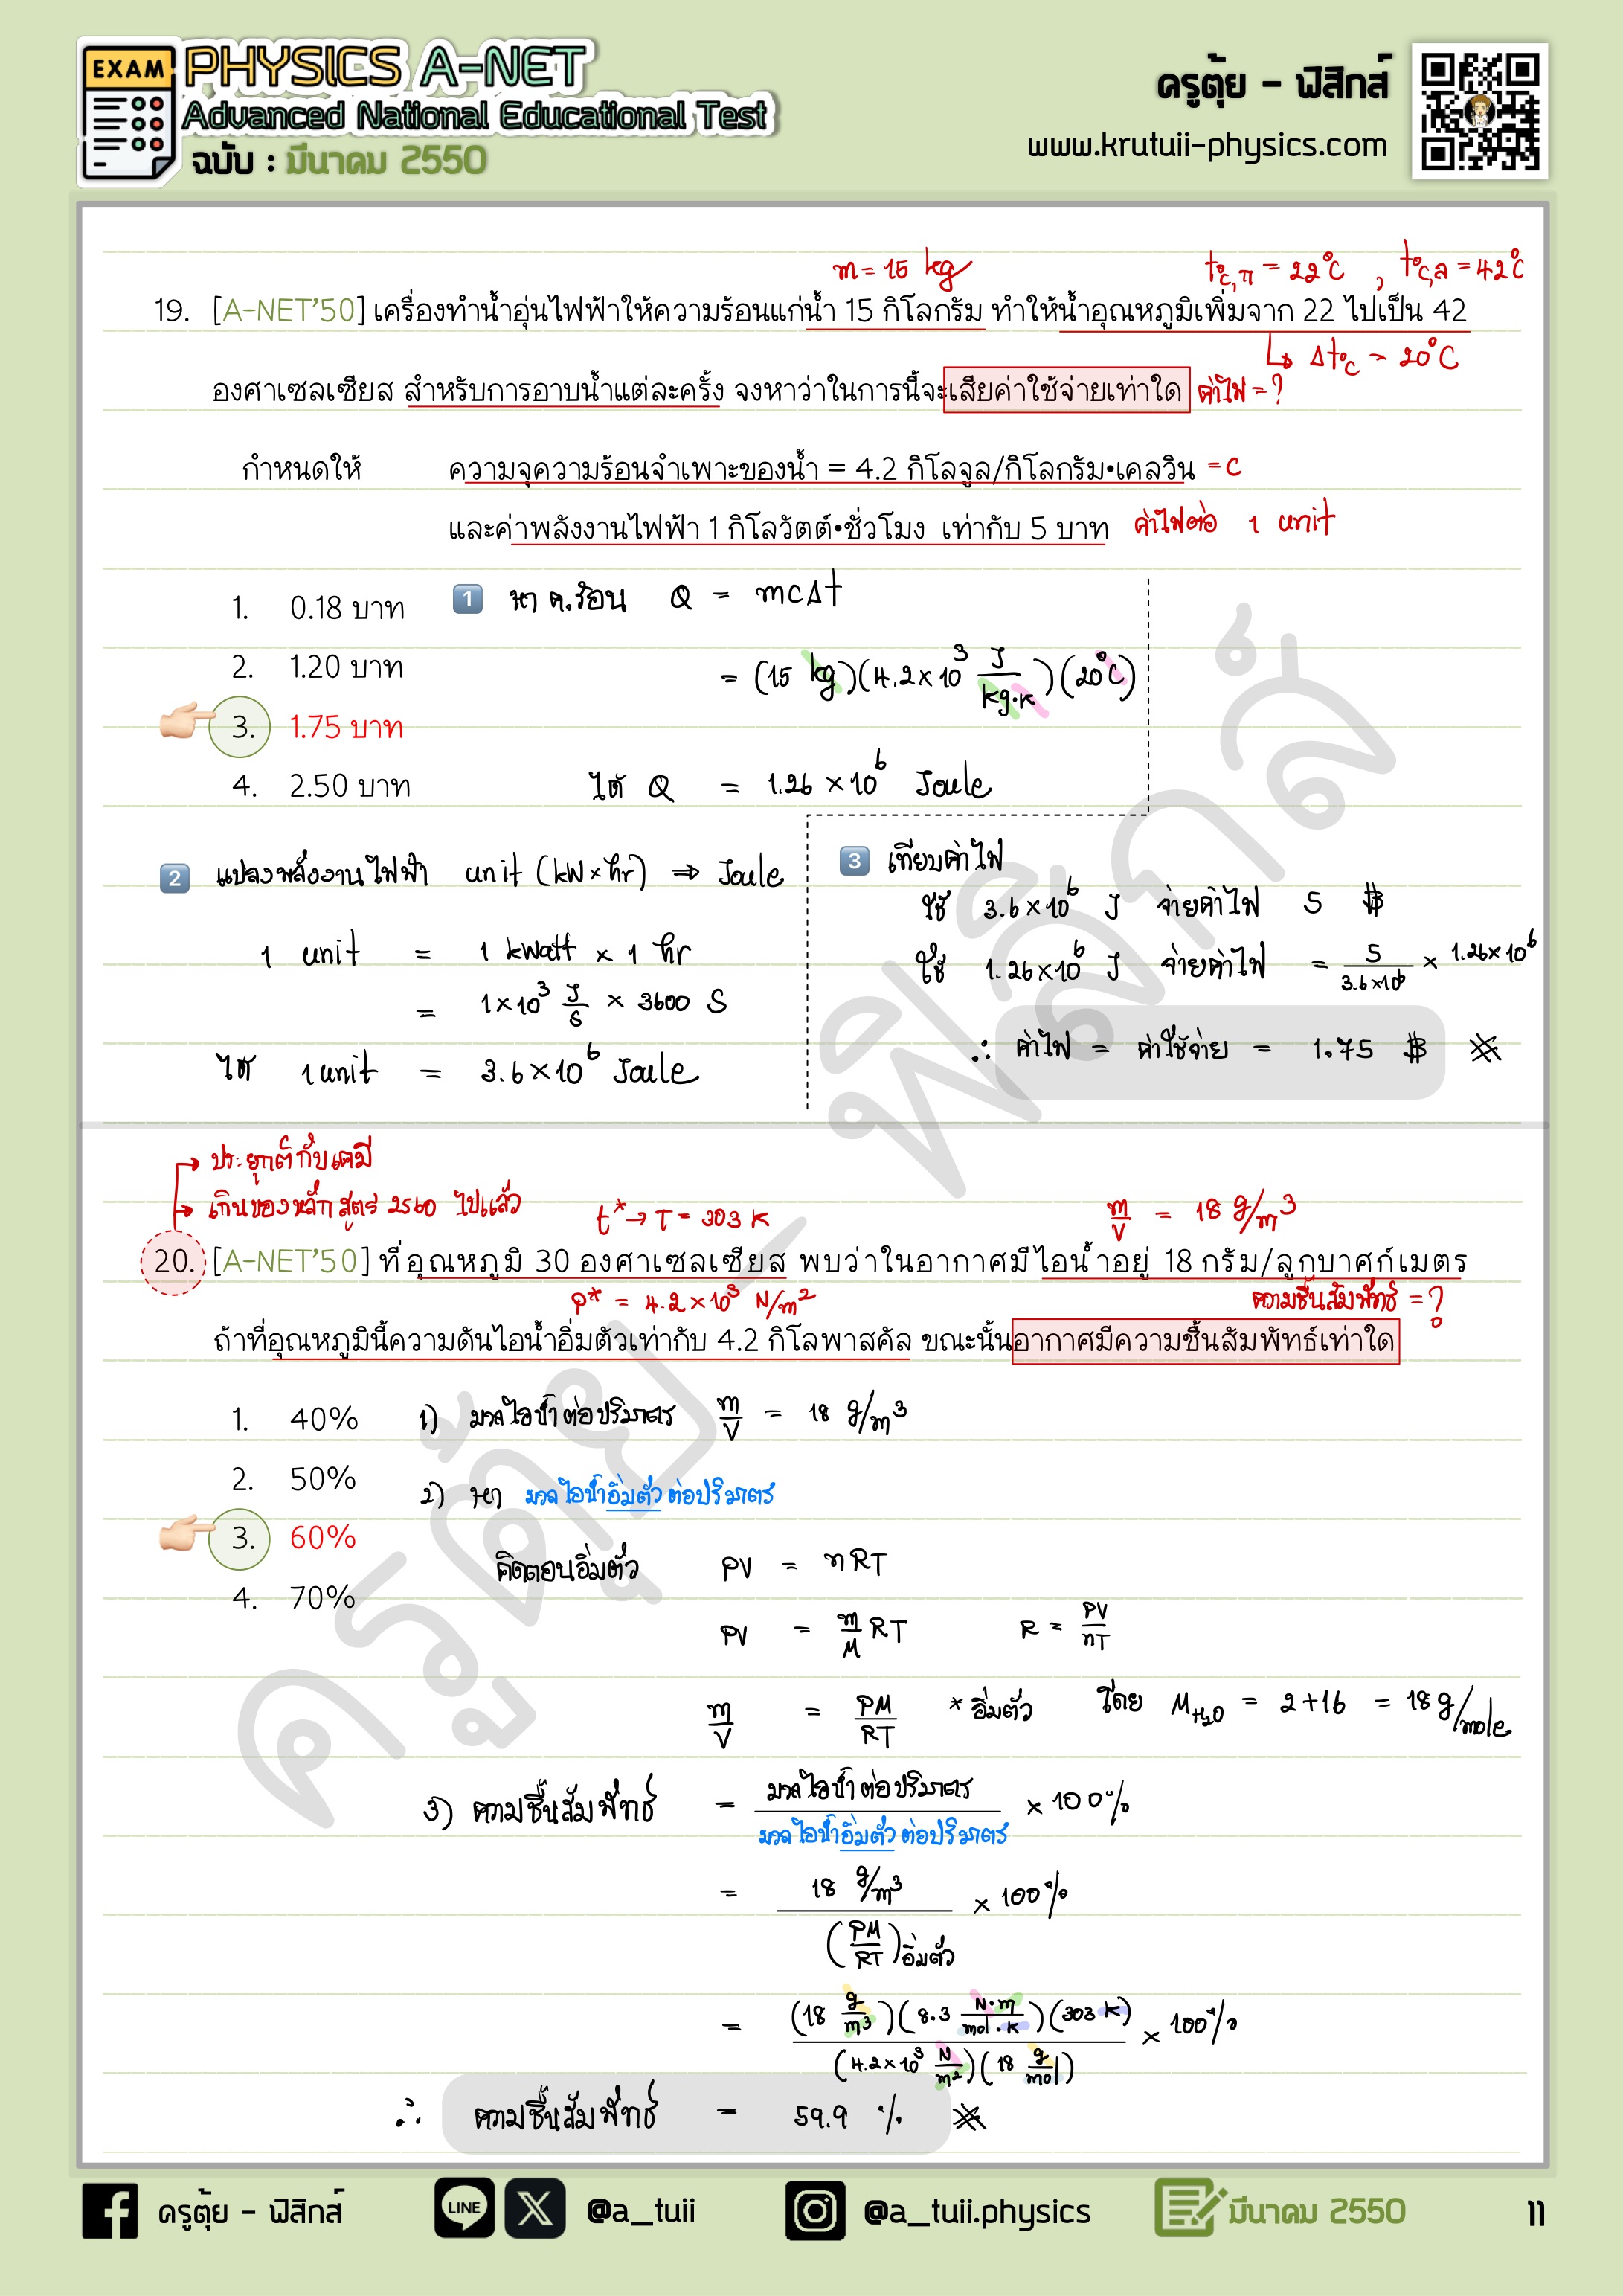 EXAM
PHYSICS A-NET
Advanced National Educational Test
ฉบับ : มีนาคม 2550
ครูตุ้ย - ฟิสิกส์
www.krutuii-physics.com
m = 15 kg
t°C,ก = 22°C , t°C,ล = 42°C
19. [A-NET'50] เครื่องทำน้ำอุ่นไฟฟ้าให้ความร้อนแก่น้ำ 15 กิโลกรัม ทำให้น้ำอุณหภูมิเพิ่มจาก 22 ไปเป็น 42
↳ Δt°C = 20°C
องศาเซลเซียส สำหรับการอาบน้ำแต่ละครั้ง จงหาว่าในการนี้จะเสียค่าใช้จ่ายเท่าใด ค่าไฟ = ?
กำหนดให้ ความจุความร้อนจำเพาะของน้ำ = 4.2 กิโลจูล/กิโลกรัม•เคลวิน = c
และค่าพลังงานไฟฟ้า 1 กิโลวัตต์•ชั่วโมง เท่ากับ 5 บาท ค่าไฟต่อ 1 unit
1. 0.18 บาท
2. 1.20 บาท
3. 1.75 บาท
4. 2.50 บาท
1 หา ค.ร้อน Q = mcΔt
= (15 kg)(4.2×10³ J/kg·K)(20°C)
ได้ Q = 1.26 × 10⁶ Joule
2 แปลงพลังงานไฟฟ้า unit (kW×hr) ⇒ Joule
1 unit = 1 kWatt × 1 hr
= 1×10³ J/s × 3600 s
ได้ 1 unit = 3.6×10⁶ Joule
3 เทียบค่าไฟ
ใช้ 3.6×10⁶ J จ่ายค่าไฟ 5 ฿
ใช้ 1.26×10⁶ J จ่ายค่าไฟ = 5/3.6×10⁶ × 1.26×10⁶
∴ ค่าไฟ = ค่าใช้จ่าย = 1.75 ฿ ※
→ ประยุกต์กับเคมี
→ เกินของหลักสูตร 2560 ไปแล้ว
t* → T = 303 K
m/V = 18 g/m³
20. [A-NET'50] ที่อุณหภูมิ 30 องศาเซลเซียส พบว่าในอากาศมีไอน้ำอยู่ 18 กรัม/ลูกบาศก์เมตร
P* = 4.2×10³ N/m²
ความชื้นสัมพัทธ์ = ?
ถ้าที่อุณหภูมินี้ความดันไอน้ำอิ่มตัวเท่ากับ 4.2 กิโลพาสคัล ขณะนั้นอากาศมีความชื้นสัมพัทธ์เท่าใด
1. 40%
2. 50%
3. 60%
4. 70%
1) มวลไอน้ำต่อปริมาตร m/V = 18 g/m³
2) หา มวลไอน้ำอิ่มตัวต่อปริมาตร
คิดตอนอิ่มตัว PV = nRT
PV = m/M RT R = PV/nT
m/V = PM/RT * อิ่มตัว โดย M_H₂O = 2+16 = 18 g/mole
3) ความชื้นสัมพัทธ์ = มวลไอน้ำต่อปริมาตร/มวลไอน้ำอิ่มตัวต่อปริมาตร × 100%
= 18 g/m³/(PM/RT)อิ่มตัว × 100%
= (18 g/m³)(8.3 N·m/mol·K)(303 K)/(4.2×10³ N/m²)(18 g/mol) × 100%
∴ ความชื้นสัมพัทธ์ = 59.9 % ※
ครูตุ้ย - ฟิสิกส์
ครูตุ้ย - ฟิสิกส์
LINE
@a_tuii
@a_tuii.physics
มีนาคม 2550
11